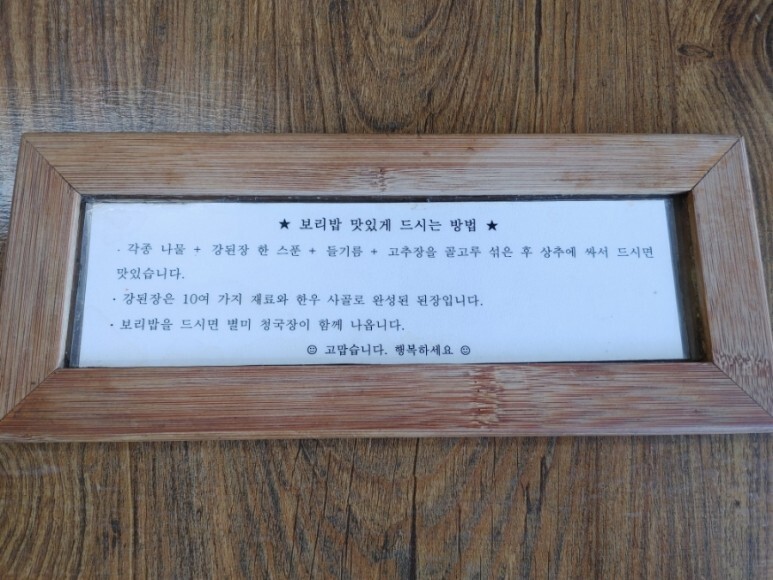 ★ 보리밥 맛있게 드시는 방법 ★
· 각종 나물 + 강된장 한 스푼 + 들기름 + 고추장을 골고루 섞은 후 상추에 싸서 드시면
맛있습니다.
· 강된장은 10여 가지 재료와 한우 사골로 완성된 된장입니다.
· 보리밥을 드시면 별미 청국장이 함께 나옵니다.
☺ 고맙습니다. 행복하세요 ☺